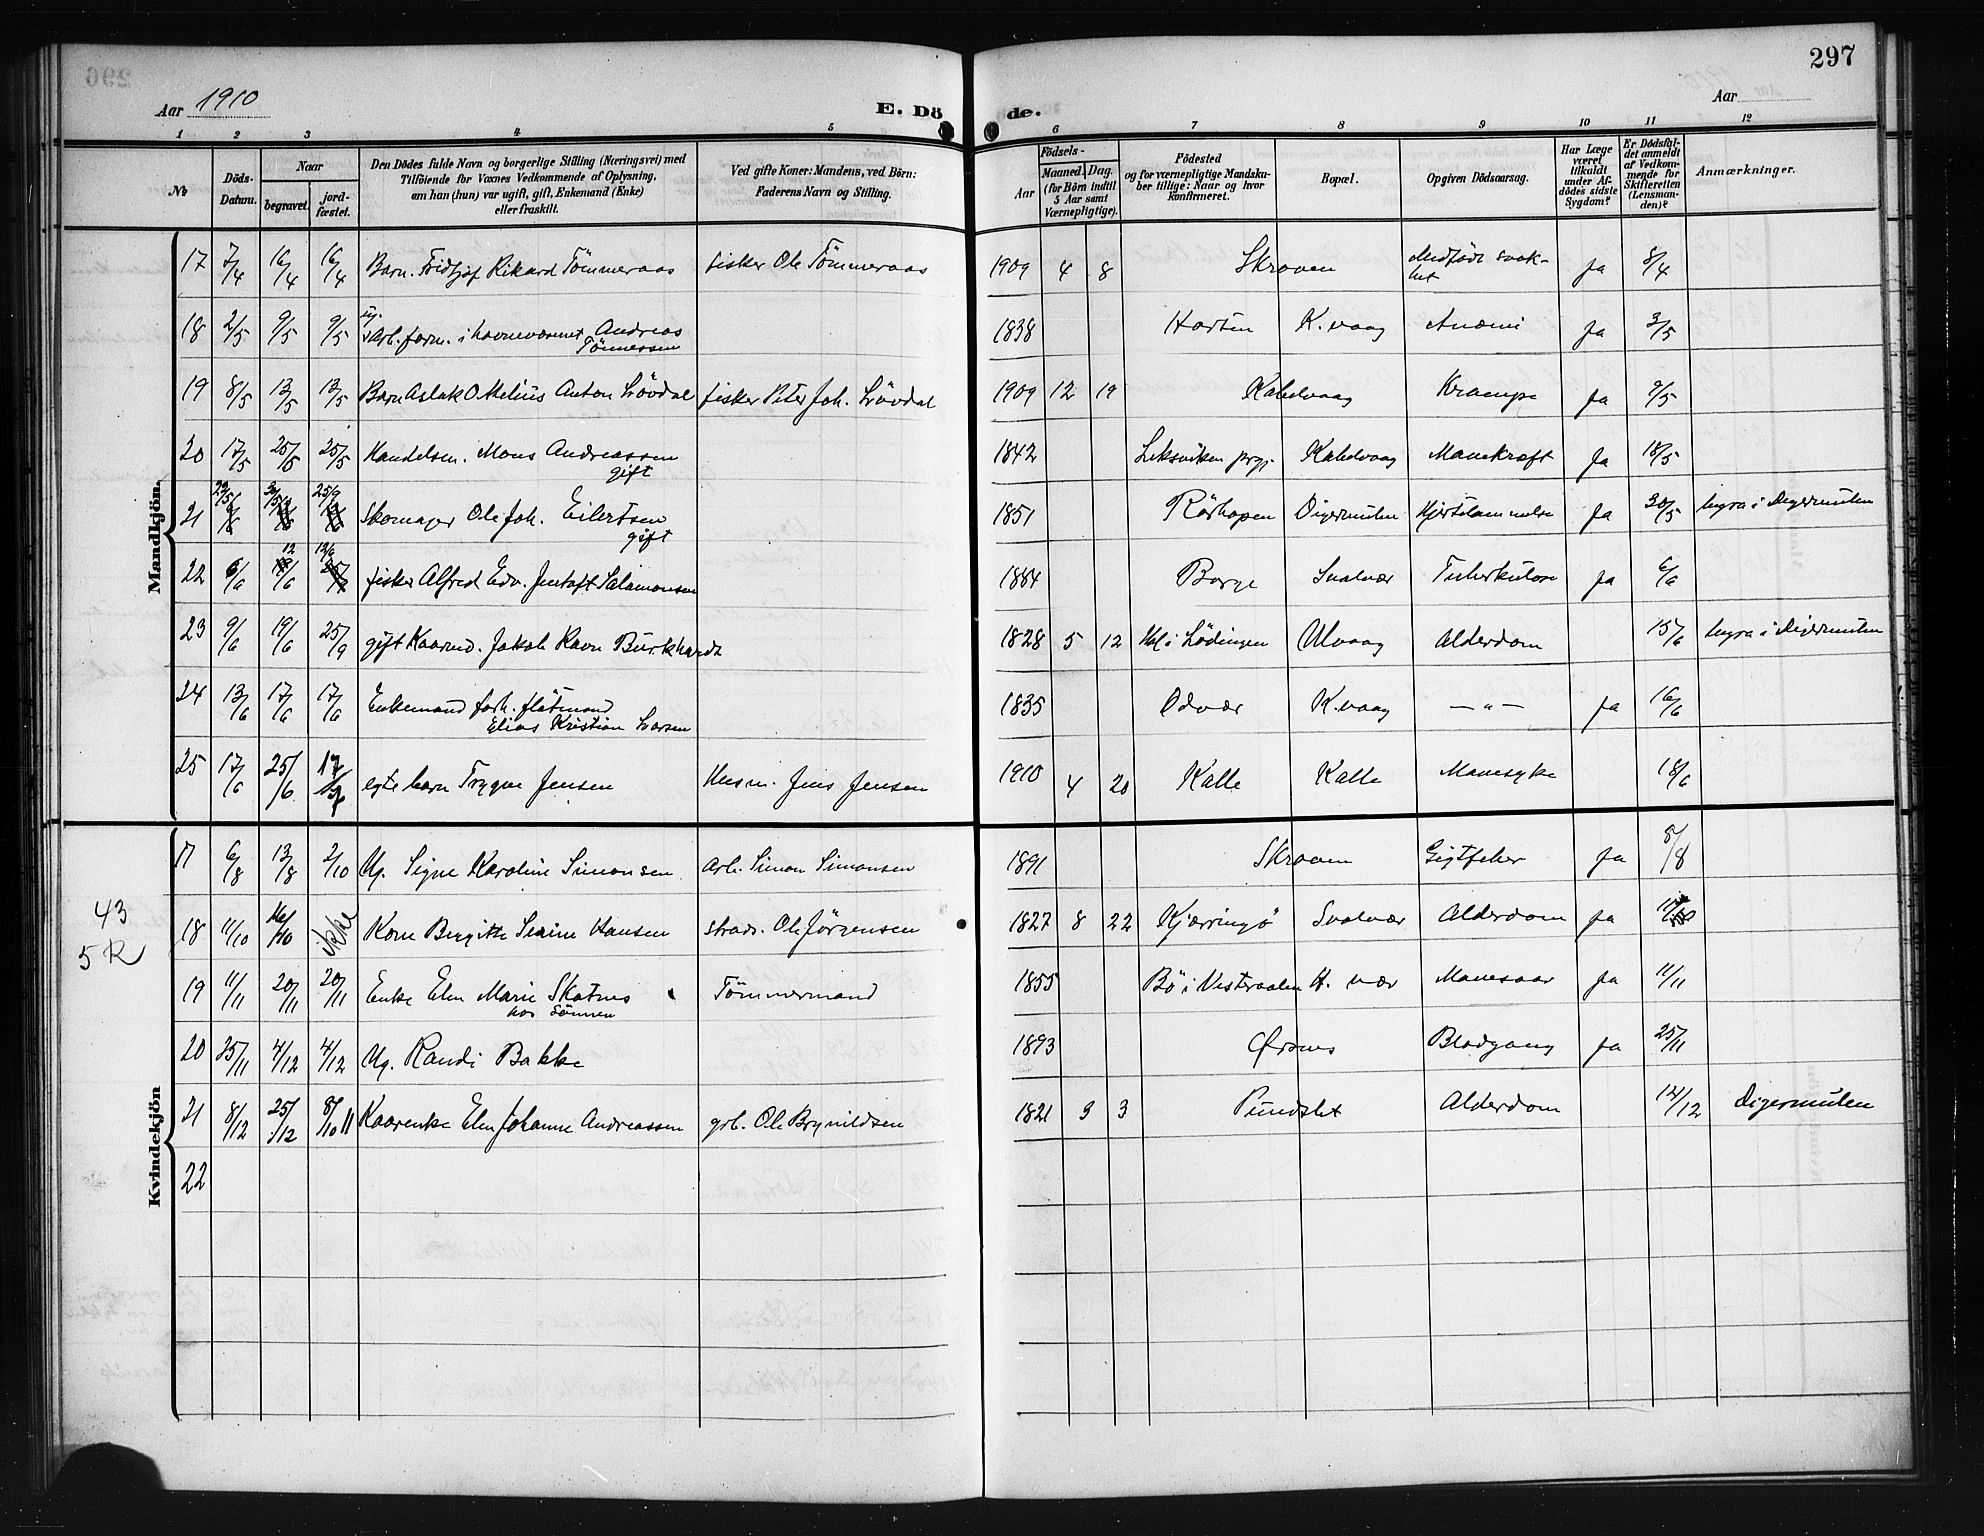 297
Aar 1910
E. Dö
de.
Aar
1 2 3 4 5 6 7 8 9 10 11 12
No
Döds-
Datum.
Naar
begravet.
jord-
fæstet.
Den Dödes fulde Navn og borgerlige Stilling (Næringsvei) med
Tilföiende for Voxnes Vedkommende af Oplysning,
om han (hun) var ugift, gift, Enkemand (Enke)
eller fraskilt.
Ved gifte Koner: Mandens, ved Börn:
Faderens Navn og Stilling.
Födsels-
Aar
Maaned. Dag.
(for Börn indtil
5 Aar samt
Værnepligtige).
Födested
og for værnepligtige Mandsku-
ber tillige: Naar og hvor
konfirmeret.
Bopæl.
Opgiven Dödsaarsag.
Har Læge
været
tilkaldt
under Af-
dödes sidste
Sygdom?
Er Dödsfal-
det anmeldt
af Vedkom-
mende for
Skifteretten
(Lensman-
den)?
Anmærkninger.
Mandkjön.
17 7/4 16/4 16/4 Barn. Fridtjof Rikard Tömmeraas fisker Ole Tömmeraas 1909 4 8 Skroven Medfödt svak-
het ja 8/4
18 2/5 9/5 9/5 ug. Arb.form. i havnevæsenet Andreas
Tönnessen 1838 Horten K.vaag Anæmi ja 3/5
19 8/5 13/5 13/5 Barn Aslak O. Melius Anton Lövdal fisker Peter Joh. Lövdal 1909 12 19 Kabelvaag Krampe ja 9/5
20 17/5 25/5 25/5 Handelsm. Mons Andreassen
gift 1842 Leksviken prgj. Kabelvaag Mavekræft ja 18/5
21 29/5 30/5 25/9 Skomager Ole Joh. Eilertsen
gift 1851 Rörhopen Digermulen Hjertelammelse ja 30/5 bygra i Digermulen
22 6/6 12/6 12/6 fisker Alfred Edv. Jentoft Salamonsen 1884 Borge Svolvær Tuberkulose ja 6/6
23 9/6 19/6 25/9 gift Kaarmd. Jakob Ravn Burkhardt 1828 5 12 Hol i Lödingen Ulvaag Alderdom 15/6 bygra i Digermulen
24 13/6 17/6 17/6 Enkemand forh. flötmand
Elias Kristian Larsen 1835 Odvær K.vaag — „ — ja 16/6
25 17/6 25/6 17/7 egte barn Trygve Jensen Husm. Jens Jensen 1910 4 20 Kalle Kalle Mavesyke 18/6
Kvindekjön
43
5 R
17 6/8 13/8 2/10 Ug. Signe Karoline Simonsen Arb. Simon Simonsen 1891 Skroven Gigtfeber ja 8/8
18 11/10 16/10 ikke Kone Bergitte Serine Hansen strads. Ole Jörgensen 1827 8 22 Kjærringö Svolvær Alderdom ja
19 11/11 20/11 20/11 Enke Elen Marie Skotnes
hos Sönnen Tömmermand 1855 Bö i Vesteraalen H. vær Mavesaar ja 11/11
20 25/11 4/12 4/12 Ug. Randi Bakke 1893 Örsnes Blodgang ja 25/11
21 8/12 25/12 8/10 11 Kaarenke Elen Johanne Andreassen grb. Ole Brynildsen 1821 9 3 Pundslet Alderdom 12/12 Digermulen
22